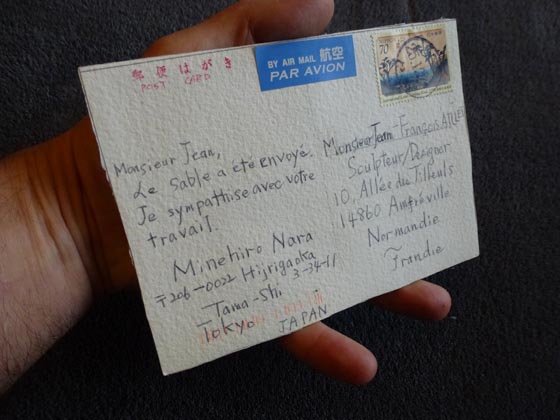 郵便はがき
POST CARD
BY AIR MAIL 航空
PAR AVION
70
Monsieur Jean,
Le Sable a été envoyé.
Je sympathise avec votre
travail.
Minehiro Nara
〒206-0022 Hijirigaoka
3-34-11
Tama-Shi
Tokyo
JAPAN
Monsieur Jean-François
Sculpteur/Designer
10, Allée du Tilleuls
14860 Amfréville
Normandie
Frandie